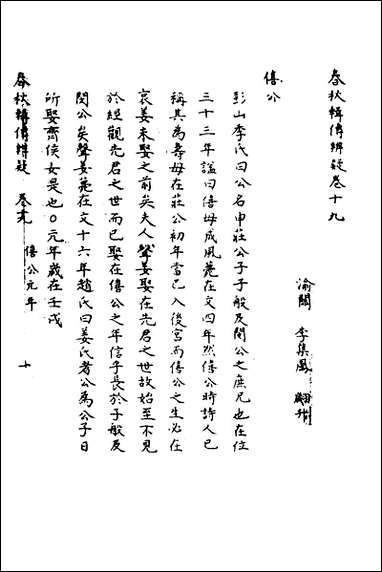 春秋輯傳辨疑卷十九
渝關 李集鳳 翽升
僖公
彭山李氏曰公名申莊公子子般及閔公之庶兄也在位
三十三年諡曰僖母成風薨在文四年然僖公時詩人已
稱其為壽母在莊公初年當已入後宮而僖公之生必在
哀姜未娶之前矣夫人聲姜娶在先君之世故始至不見
於經觀先君之世而已娶在僖公之年信乎長於子般及
閔公矣聲姜薨在文十六年趙氏曰姜氏者公為公子日
所娶齊侯女是也○元年歲在壬戌
春秋輯傳辨疑 卷十九 僖公元年 十